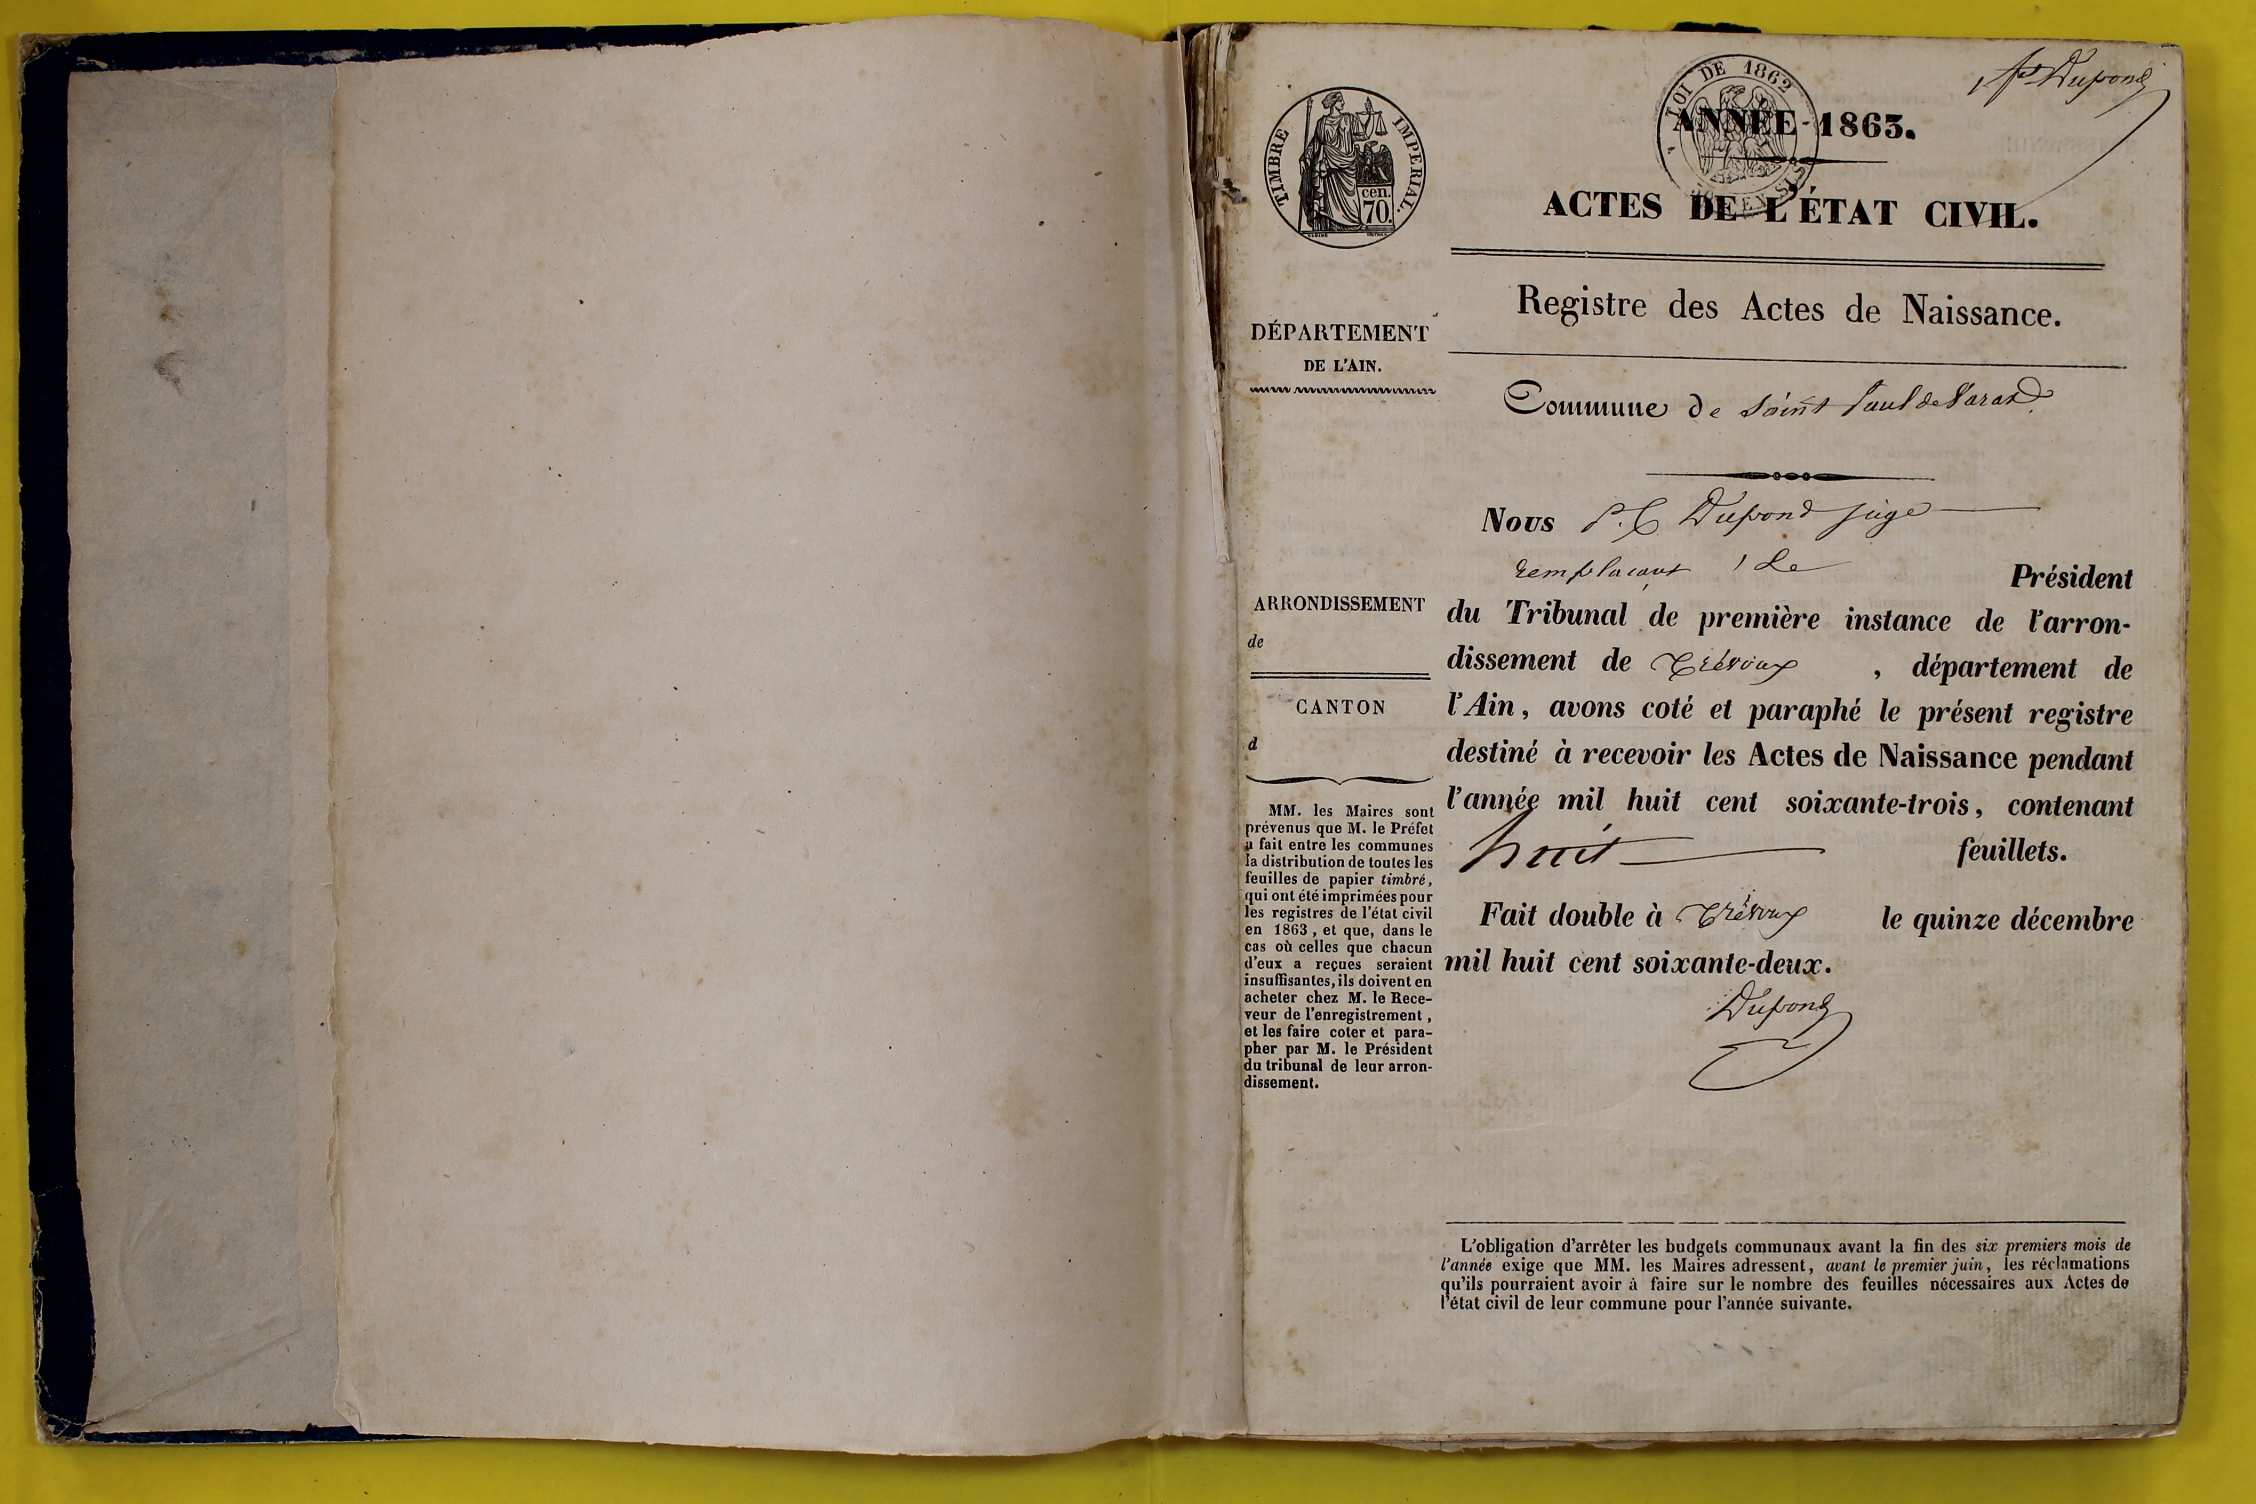 LOI DE 1862
Dupond
TIMBRE IMPERIAL.
cen.
70.
ANNÉE 1863.
ACTES DE L'ÉTAT CIVIL.
Registre des Actes de Naissance.
DÉPARTEMENT
DE L'AIN.
Commune de Saint Paul de Varax
Nous P. C Dupond juge
remplaçant le Président
du Tribunal de première instance de l'arron-
dissement de Trévoux, département de
l'Ain, avons coté et paraphé le présent registre
destiné à recevoir les Actes de Naissance pendant
l'année mil huit cent soixante-trois, contenant
huit feuillets.
Fait double à Trévoux le quinze décembre
mil huit cent soixante-deux.
Dupond
ARRONDISSEMENT
de
CANTON
d
MM. les Maires sont
prévenus que M. le Préfet
a fait entre les communes
la distribution de toutes les
feuilles de papier timbré,
qui ont été imprimées pour
les registres de l'état civil
en 1863, et que, dans le
cas où celles que chacun
d'eux a reçues seraient
insuffisantes, ils doivent en
acheter chez M. le Rece-
veur de l'enregistrement,
et les faire coter et para-
pher par M. le Président
du tribunal de leur arron-
dissement.
L'obligation d'arrêter les budgets communaux avant la fin des six premiers mois de
l'année exige que MM. les Maires adressent, avant le premier juin, les réclamations
qu'ils pourraient avoir à faire sur le nombre des feuilles nécessaires aux Actes de
l'état civil de leur commune pour l'année suivante.